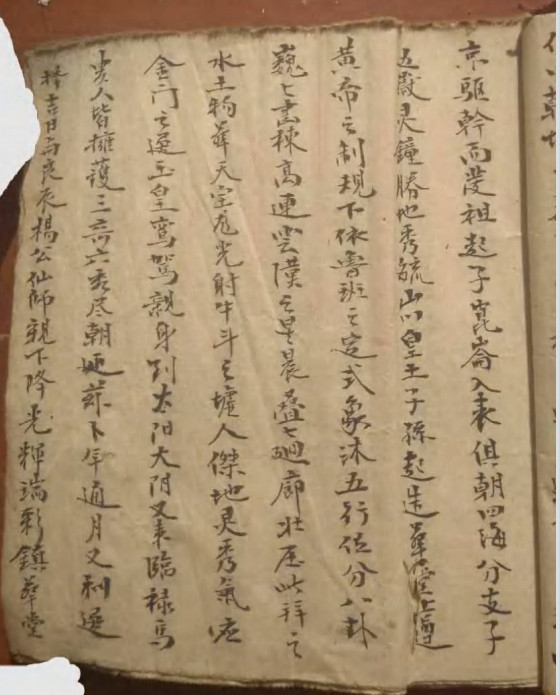 京驱幹而發祖起子崑崙入表俱朝四海分支子
五嶽灵鐘勝地秀毓山川皇王子孫起造華堂上遵
黄帝之制規下依魯班之定式象沐五行位分八卦
巍巍画棟高連雲漢之星晨叠叠廻廊壮居此拜之
水土物華天宝龙光射牛斗之墟人傑地灵秀氣
金门之選玉皇鸾駕親身到太阳大阴又来臨禄馬
貴人皆擁護三奇六秀尽朝 下年通月又利選
擇吉日与良辰楊公仙師親下降光輝瑞彩鎮華堂